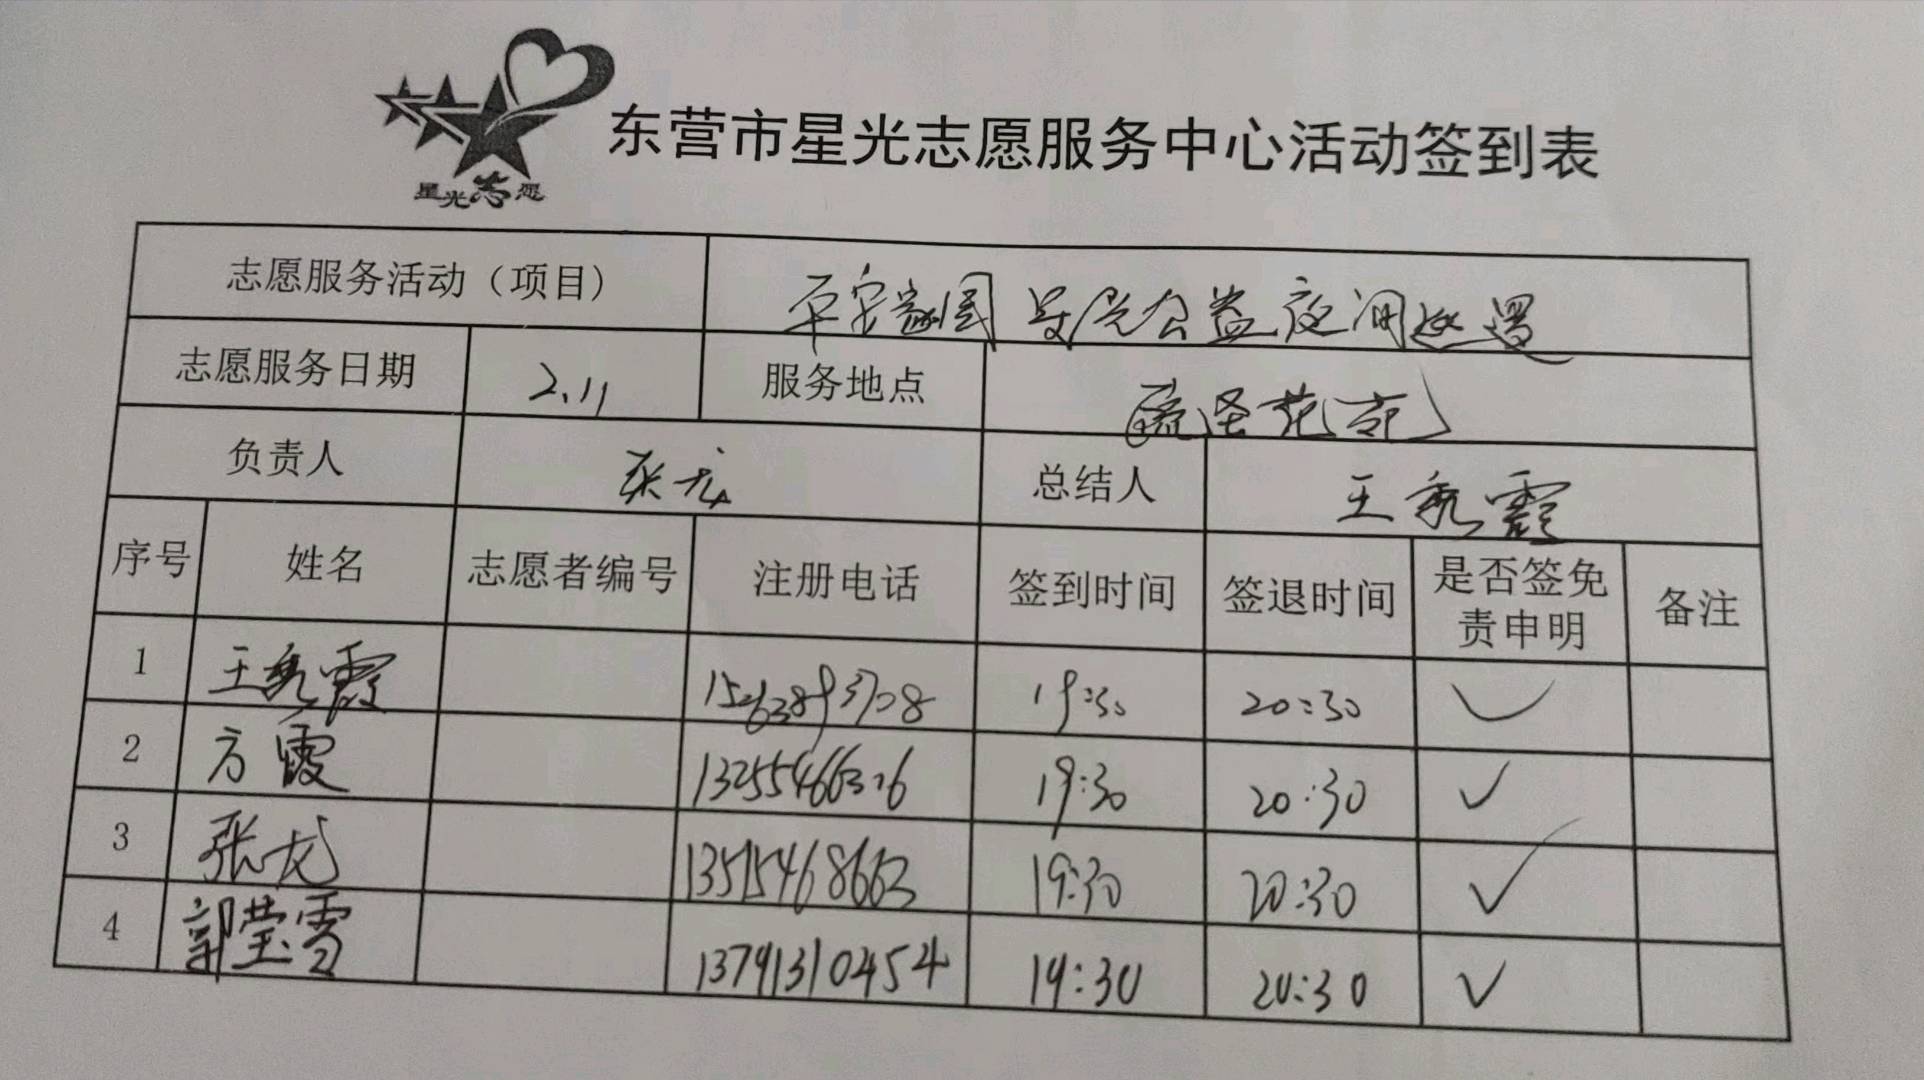 星光志愿
东营市星光志愿服务中心活动签到表
志愿服务活动（项目） 平安家园 公益夜间巡逻
志愿服务日期 2.11 服务地点
负责人 张龙 总结人 王秀霞
序号 姓名 志愿者编号 注册电话 签到时间 签退时间 是否签免责申明 备注
1 王秀霞 19:30 20:30 ✓
2 方霞 19:30 20:30 ✓
3 张龙 13515468663 19:30 20:30 ✓
4 郭莹雪 13791310454 19:30 20:30 ✓